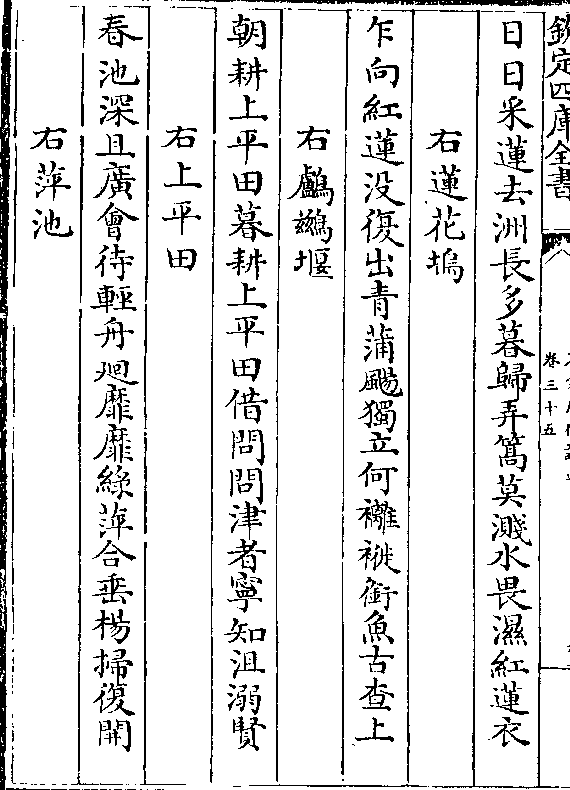 欽定四庫全書
卷三十五
日日采蓮去洲長多暮歸弄篙莫濺水畏濕紅蓮衣
右蓮花塢
乍向紅蓮没復出青蒲颺獨立何䙰褷銜魚古查上
右鸕鷀堰
朝耕上平田暮耕上平田借問問津者寧知沮溺賢
右上平田
春池深且廣會待輕舟廻靡靡綠萍合垂楊掃復開
右萍池